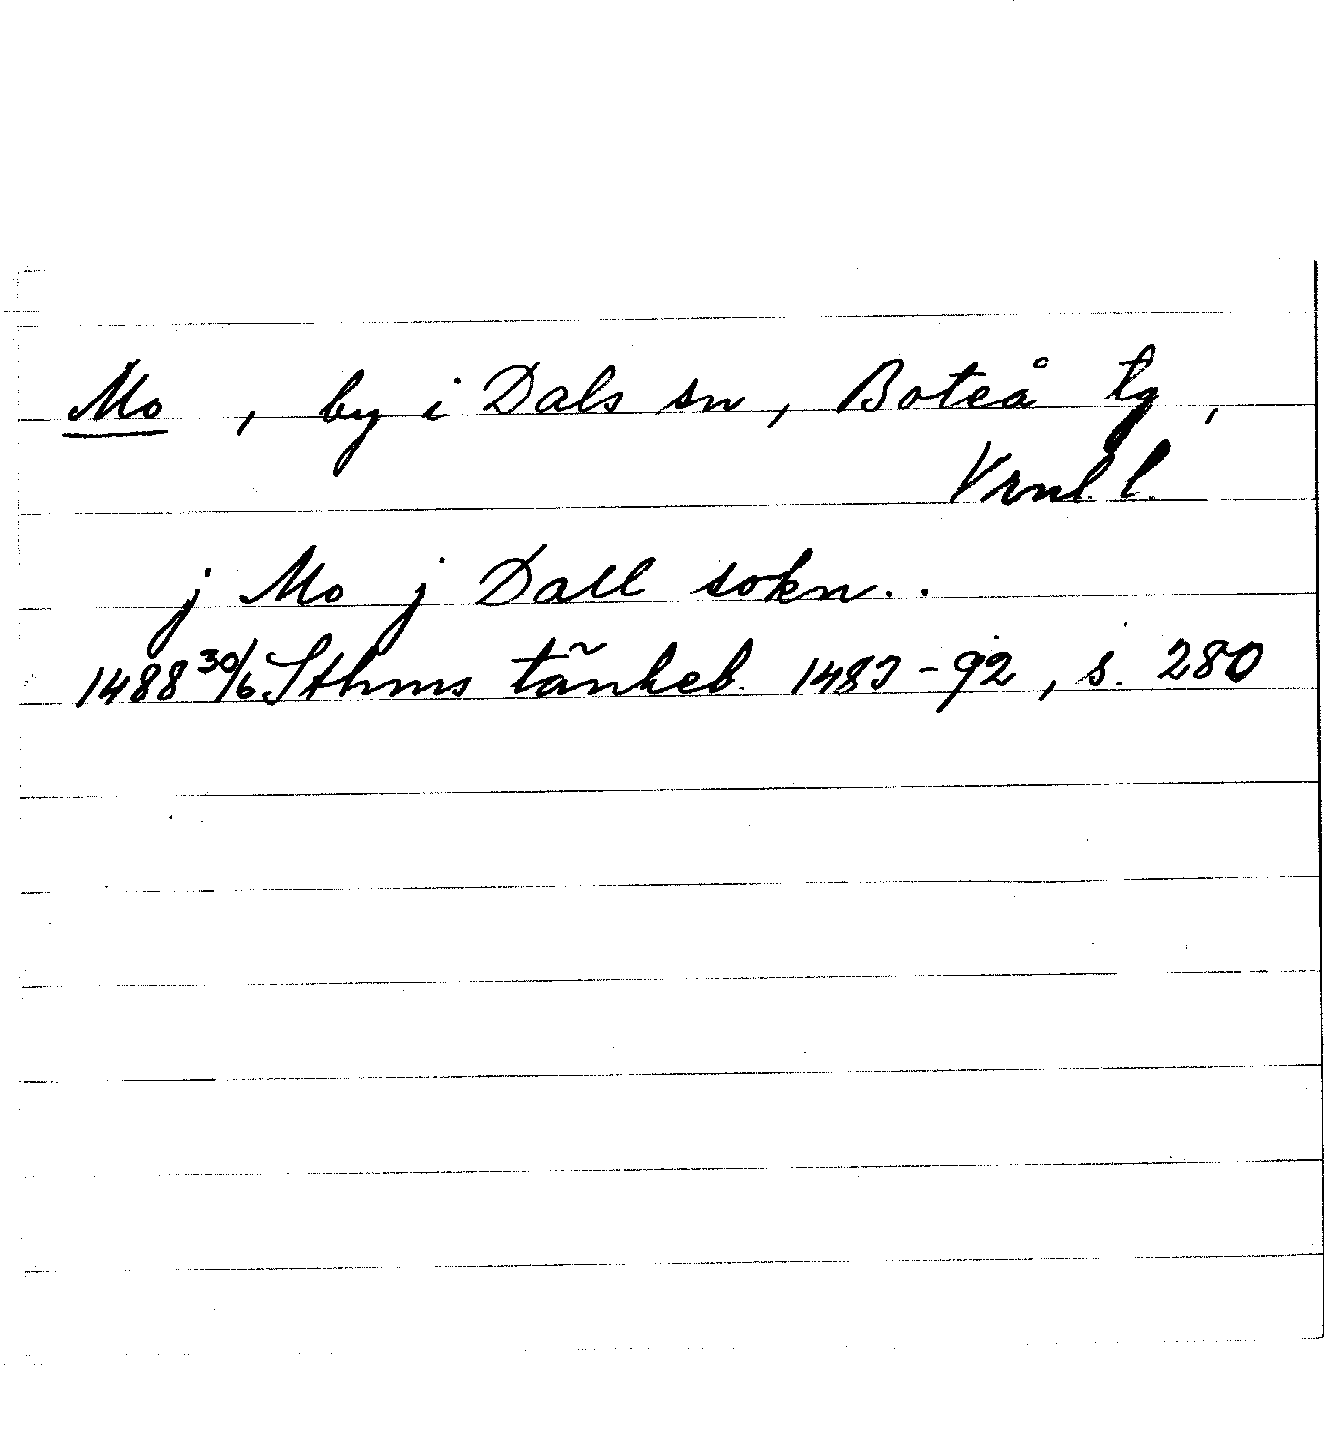 Mo, by i Dals sn, Boteå tg,
Vrnl. l.
j Mo j Dall sokn..
1488 30/6 Sthms tänkeb. 1483-92, s. 280